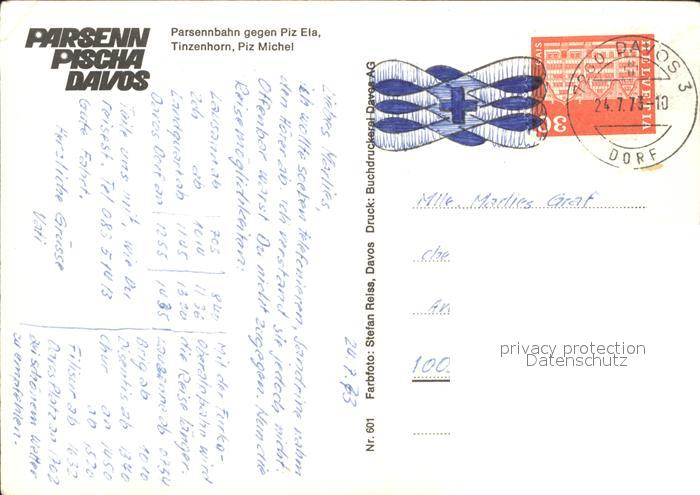 PARSENN
PISCHA
DAVOS
Parsennbahn gegen Piz Ela,
Tinzenhorn, Piz Michel
Liebes Marlies,
ich wollte soeben telefonieren, Sandrine nahm
den Hörer ab. Ich verstand sie jedoch nicht.
Offenbar warst Du nicht zugegen. Nun die
Reisemöglichkeiten:
Lausanne ab 703 840
Zch ab 1010 1136
Landquart ab 1105 1320
Davos Dorf an 1255 1435
Teile uns mit, wie Du
reisest. Tel 083 5 14 13
Gute Fahrt.
Herzliche Grüsse
Vati
Mit der Furka-
Oberalpbahn wird
die Reise länger.
Lausanne ab
Brig ab 1010
Disentis ab 1340
Chur an 1450
ab 1520
Filisur ab 1632
Davos Platz an 1702
Bei schönem Wetter
zu empfehlen.
24.7.73
Nr. 601 Farbfoto: Stefan Reiss, Davos Druck: Buchdruckerei Davos AG
HELVETIA
30
7260 DAVOS 3
24.7.73-10
DORF
Mlle. Marlies Graf
che
Av
100
privacy protection
Datenschutz